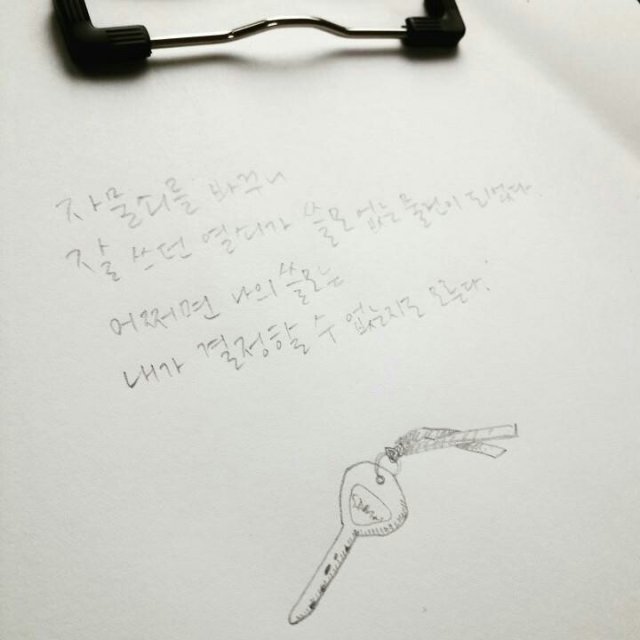 자물쇠를 바꾸니
잘 쓰던 열쇠가 쓸모없는 물건이 되었다.
어쩌면 나의 쓸모는
내가 결정할 수 없는지도 모른다.